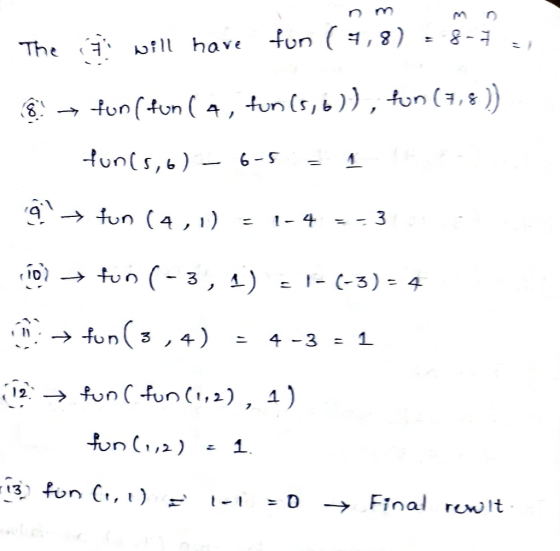 n m m n
The 7 will have fun ( 7,8) = 8-7 = 1
8 → fun(fun( 4, fun(5,6)), fun(7,8))
fun(5,6) — 6-5 = 1
9 → fun (4,1) = 1-4 = -3
10 → fun (-3, 1) = 1-(-3) = 4
11 → fun(3,4) = 4-3 = 1
12 → fun( fun(1,2), 1)
fun(1,2) = 1.
13 fun (1,1) = 1-1 = 0 → Final result.